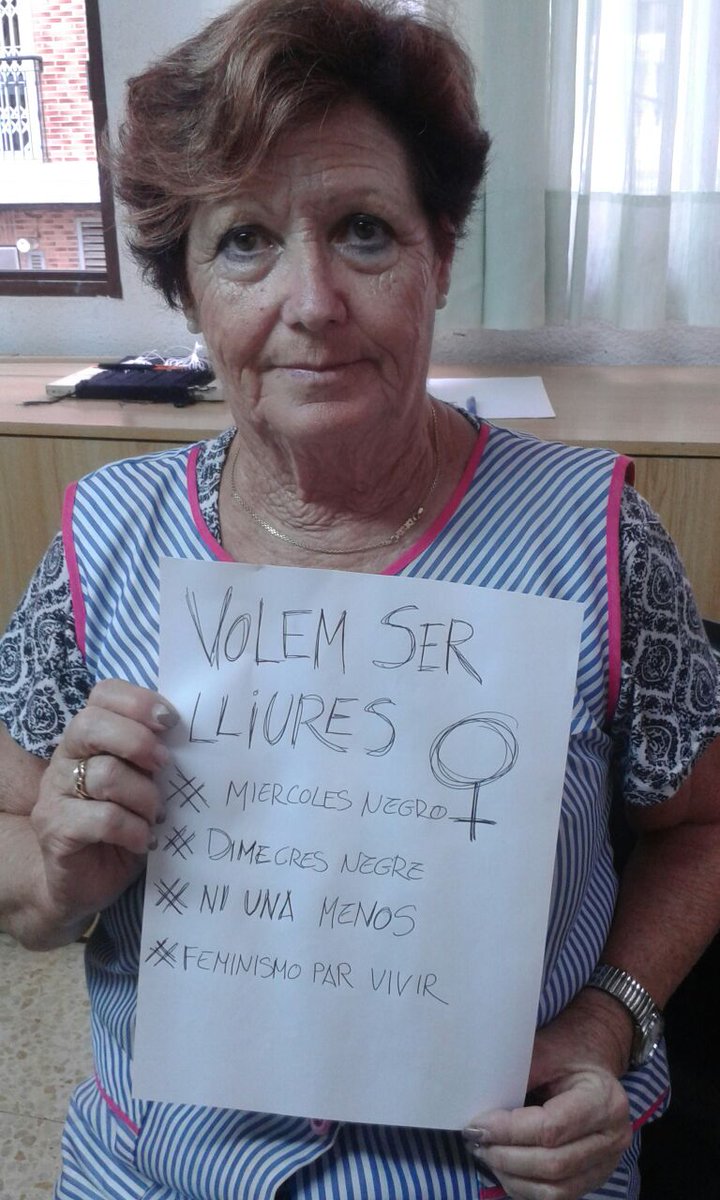 VOLEM SER
LLIURES
# MIERCOLES NEGRO
# DIMECRES NEGRE
# NI UNA MENOS
# FEMINISMO PAR VIVIR